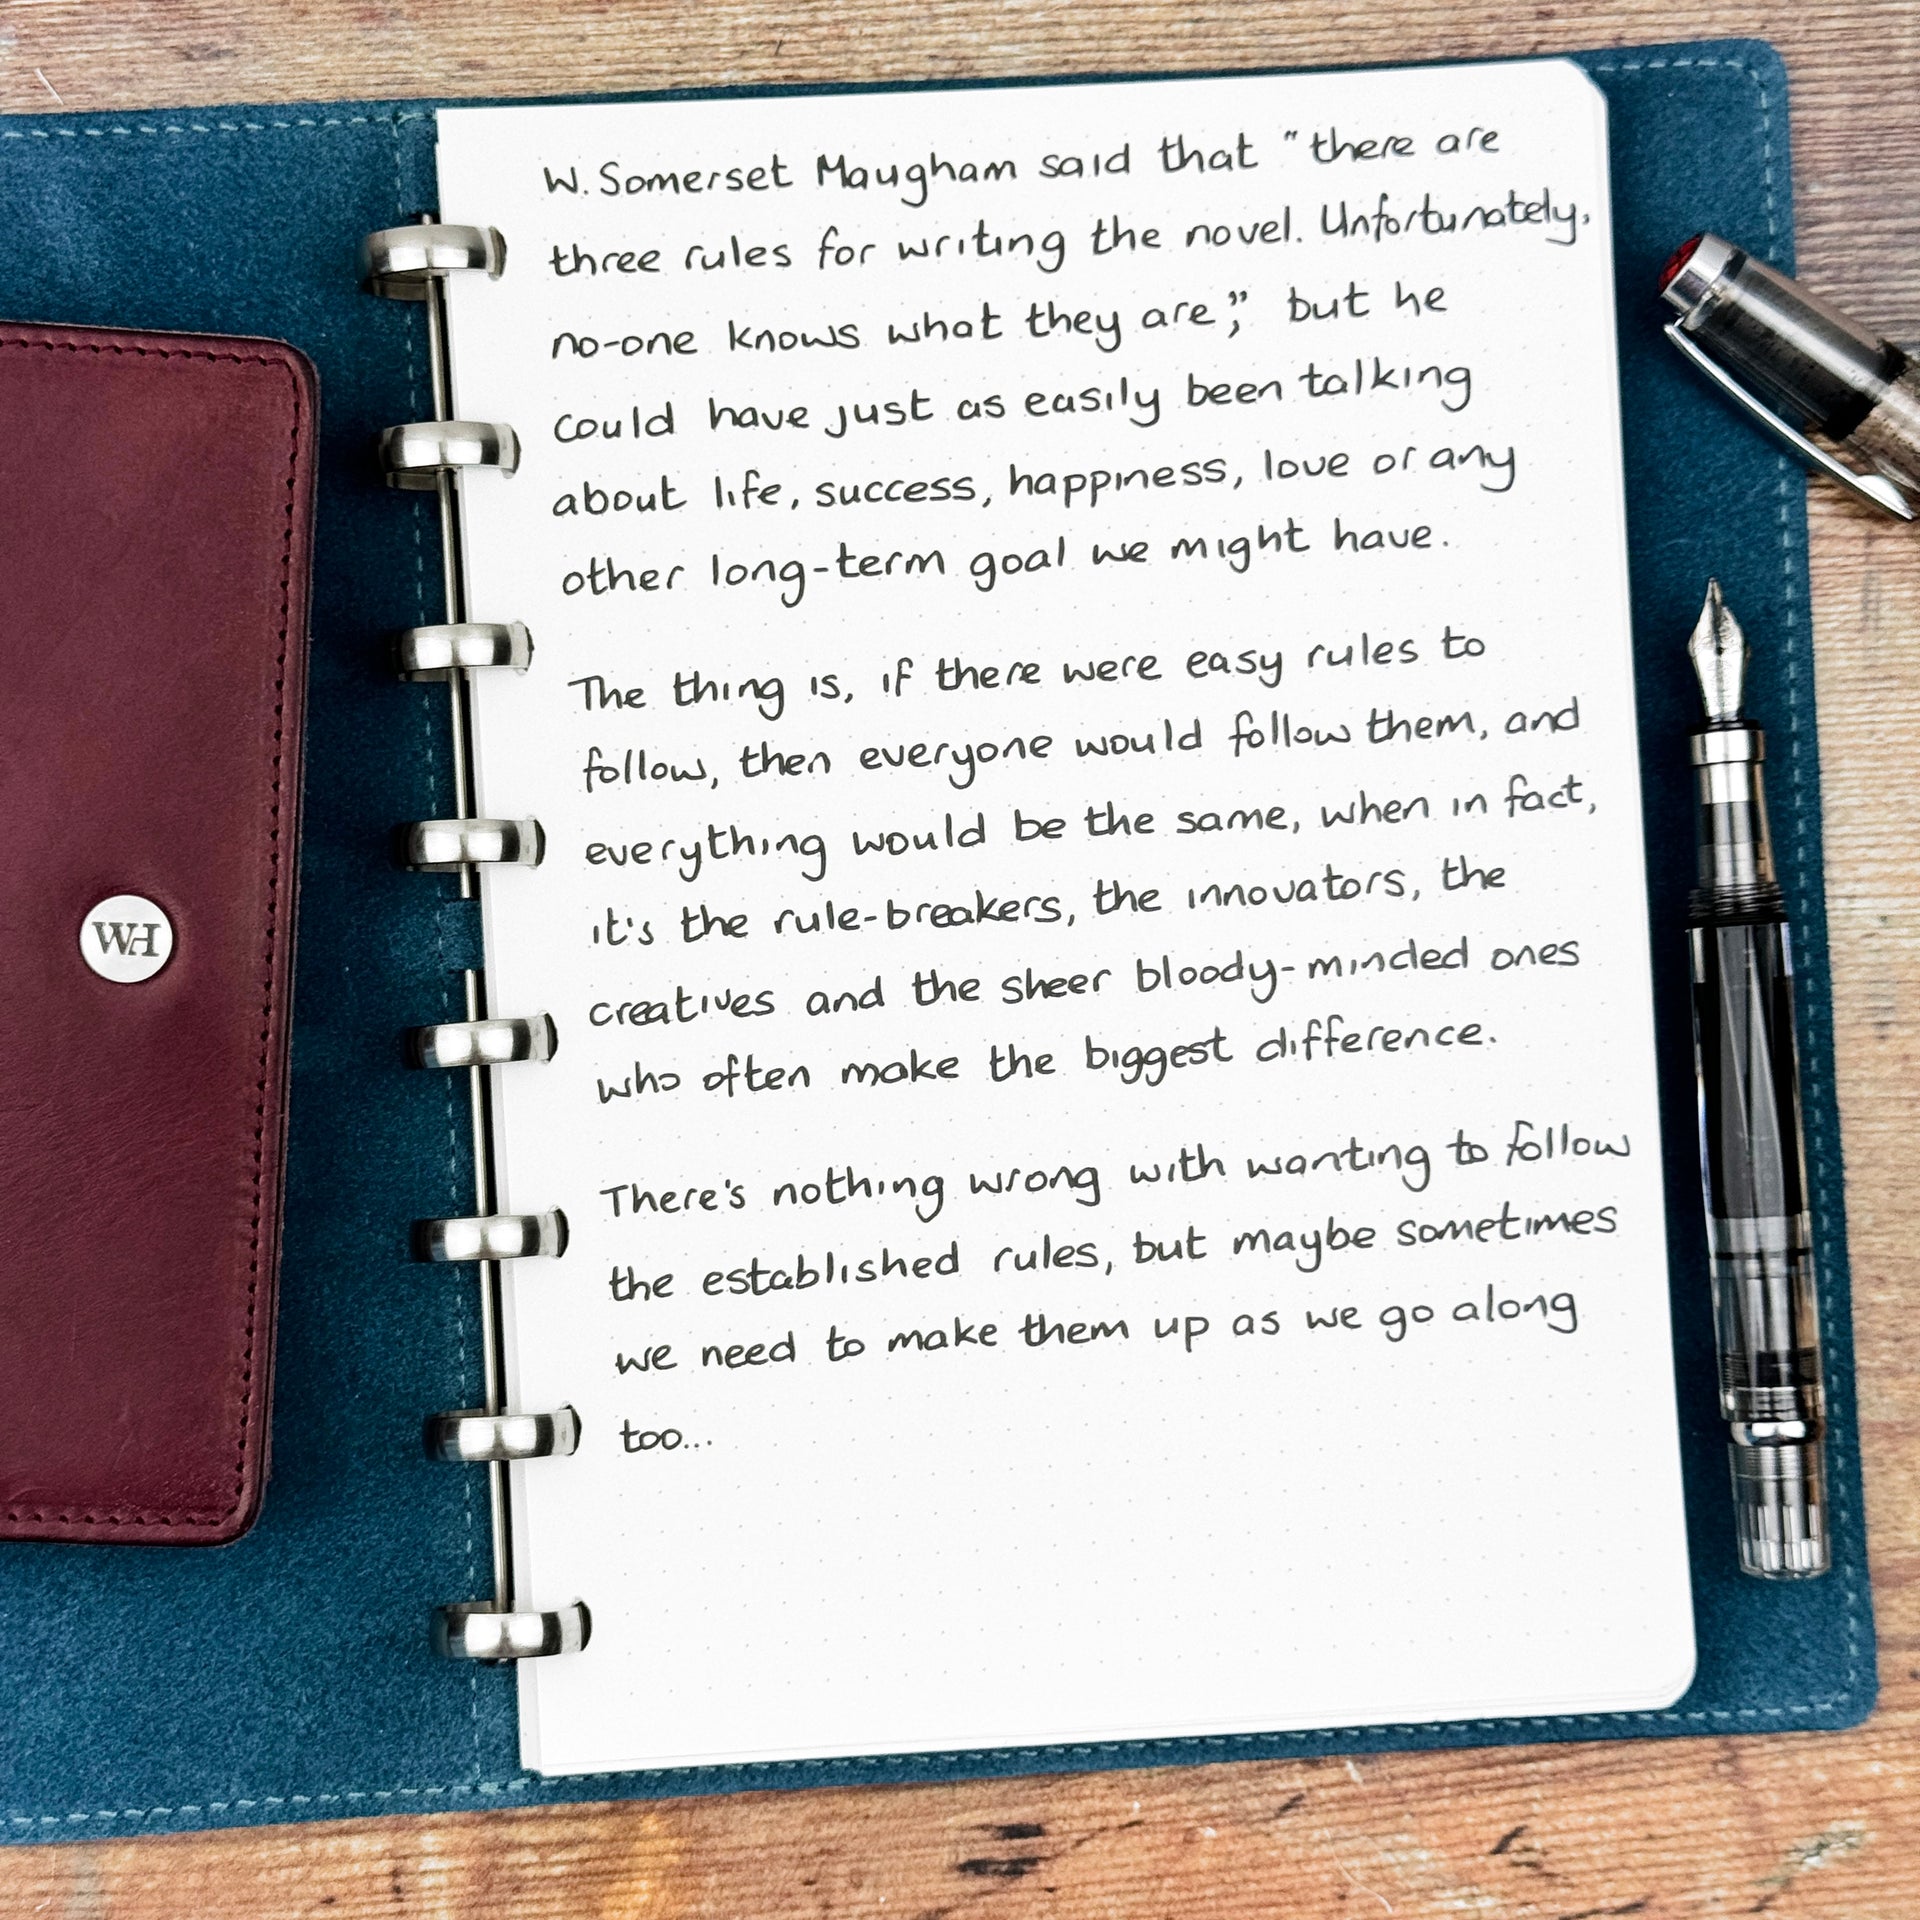 W. Somerset Maugham said that "there are
three rules for writing the novel. Unfortunately,
no-one knows what they are," but he
could have just as easily been talking
about life, success, happiness, love or any
other long-term goal we might have.
The thing is, if there were easy rules to
follow, then everyone would follow them, and
everything would be the same, when in fact,
it's the rule-breakers, the innovators, the
creatives and the sheer bloody-minded ones
who often make the biggest difference.
There's nothing wrong with wanting to follow
the established rules, but maybe sometimes
we need to make them up as we go along
too...
WH